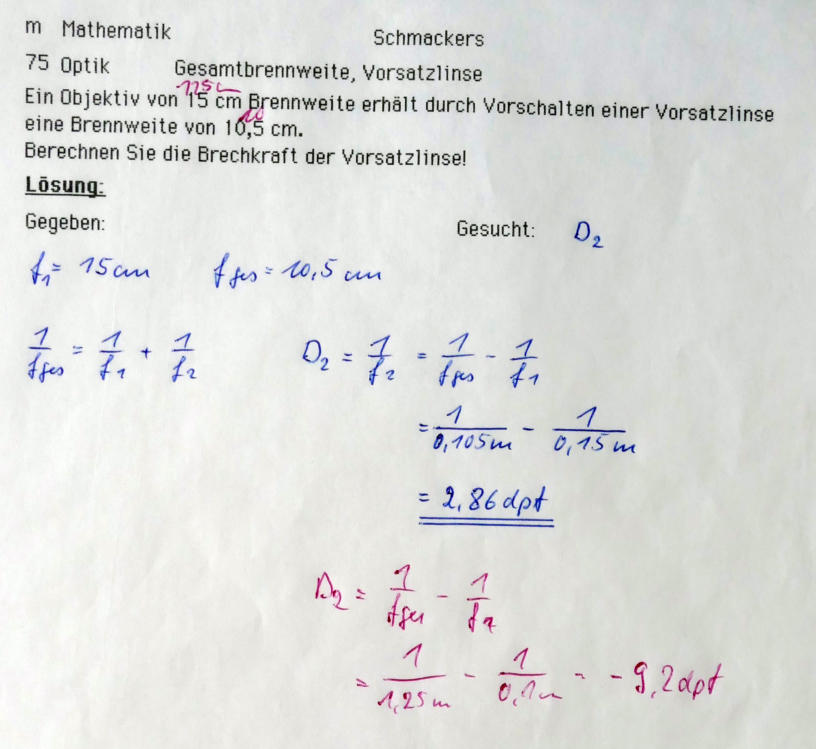 m Mathematik Schmackers
75 Optik Gesamtbrennweite, Vorsatzlinse
Ein Objektiv von 15 cm Brennweite erhält durch Vorschalten einer Vorsatzlinse
10
eine Brennweite von 10,5 cm.
Berechnen Sie die Brechkraft der Vorsatzlinse!
Lösung:
Gegeben: Gesucht: D₂
f₁ = 15 cm f ges = 10,5 cm
1/f ges = 1/f₁ + 1/f₂ D₂ = 1/f₂ = 1/f ges - 1/f₁
= 1/0,105m - 1/0,15m
= 2,86 dpt
D₂ = 1/f ges - 1/f₁
= 1/1,25m - 1/0,1m = -9,2 dpt